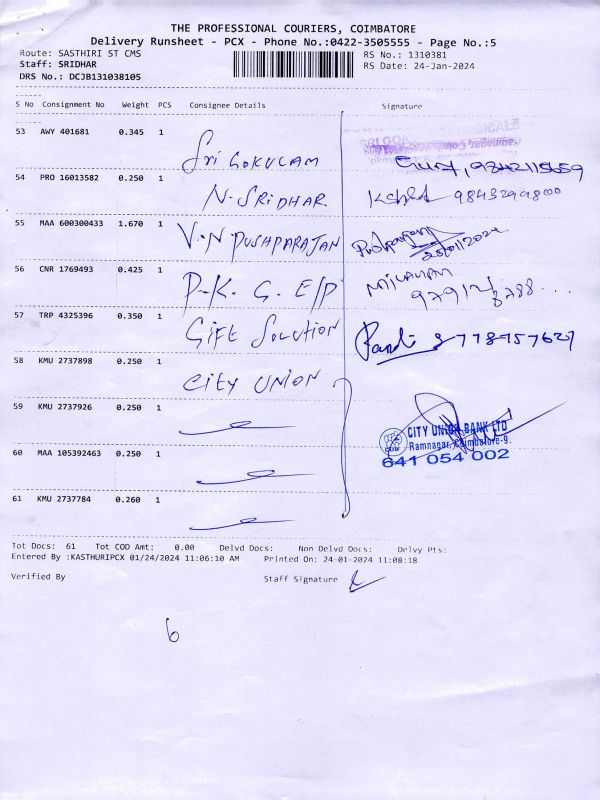 THE PROFESSIONAL COURIERS, COIMBATORE
Delivery Runsheet - PCX - Phone No.:0422-3505555 - Page No.:5
Route: SASTHIRI ST CMS RS No.: 1310381
Staff: SRIDHAR RS Date: 24-Jan-2024
DRS No.: DCJB131038105
S No Consignment No Weight PCS Consignee Details Signature
53 AWY 401681 0.345 1
Sri GOKULAM 9842115659
54 PRO 16013582 0.250 1
N. SRIDHAR. 9843299800
55 MAA 600300433 1.670 1
V.N PUSHPARAJAN Pushparajan
25/01/2024
56 CNR 1769493 0.425 1
P.K. G. E/P
57 TRP 4325396 0.350 1
GIFT SOLUTION Pandi 8778957627
58 KMU 2737898 0.250 1
CITY UNION
59 KMU 2737926 0.250 1
CITY UNION BANK LTD
Ramnagar, Coimbatore-9.
641 054 002
60 MAA 105392463 0.250 1
61 KMU 2737784 0.260 1
Tot Docs: 61 Tot COD Amt: 0.00 Delvd Docs: Non Delvd Docs: Delvy Pts:
Entered By :KASTHURIPCX 01/24/2024 11:06:10 AM Printed On: 24-01-2024 11:08:18
Verified By Staff Signature
6